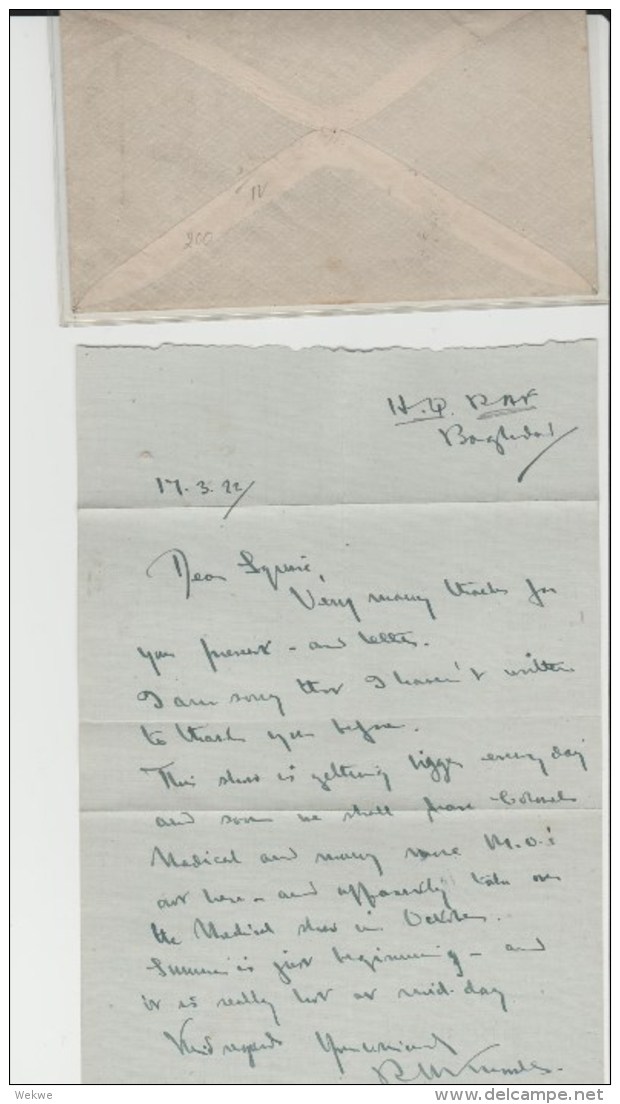 IV
200
H.Q. RAF
Baghdad
17.3.22
Dear Squire,
Very many thanks for
your present - and letter.
I am sorry that I haven't written
to thank you before.
This show is getting bigger every day
and soon we shall have Colonels
Medical and many more M.O.s
out here - and apparently take over
the Medical show in October.
Summer is just beginning - and
it is really hot at mid-day
Kind regards Yours sincerely
Wekwe
delcampe.net